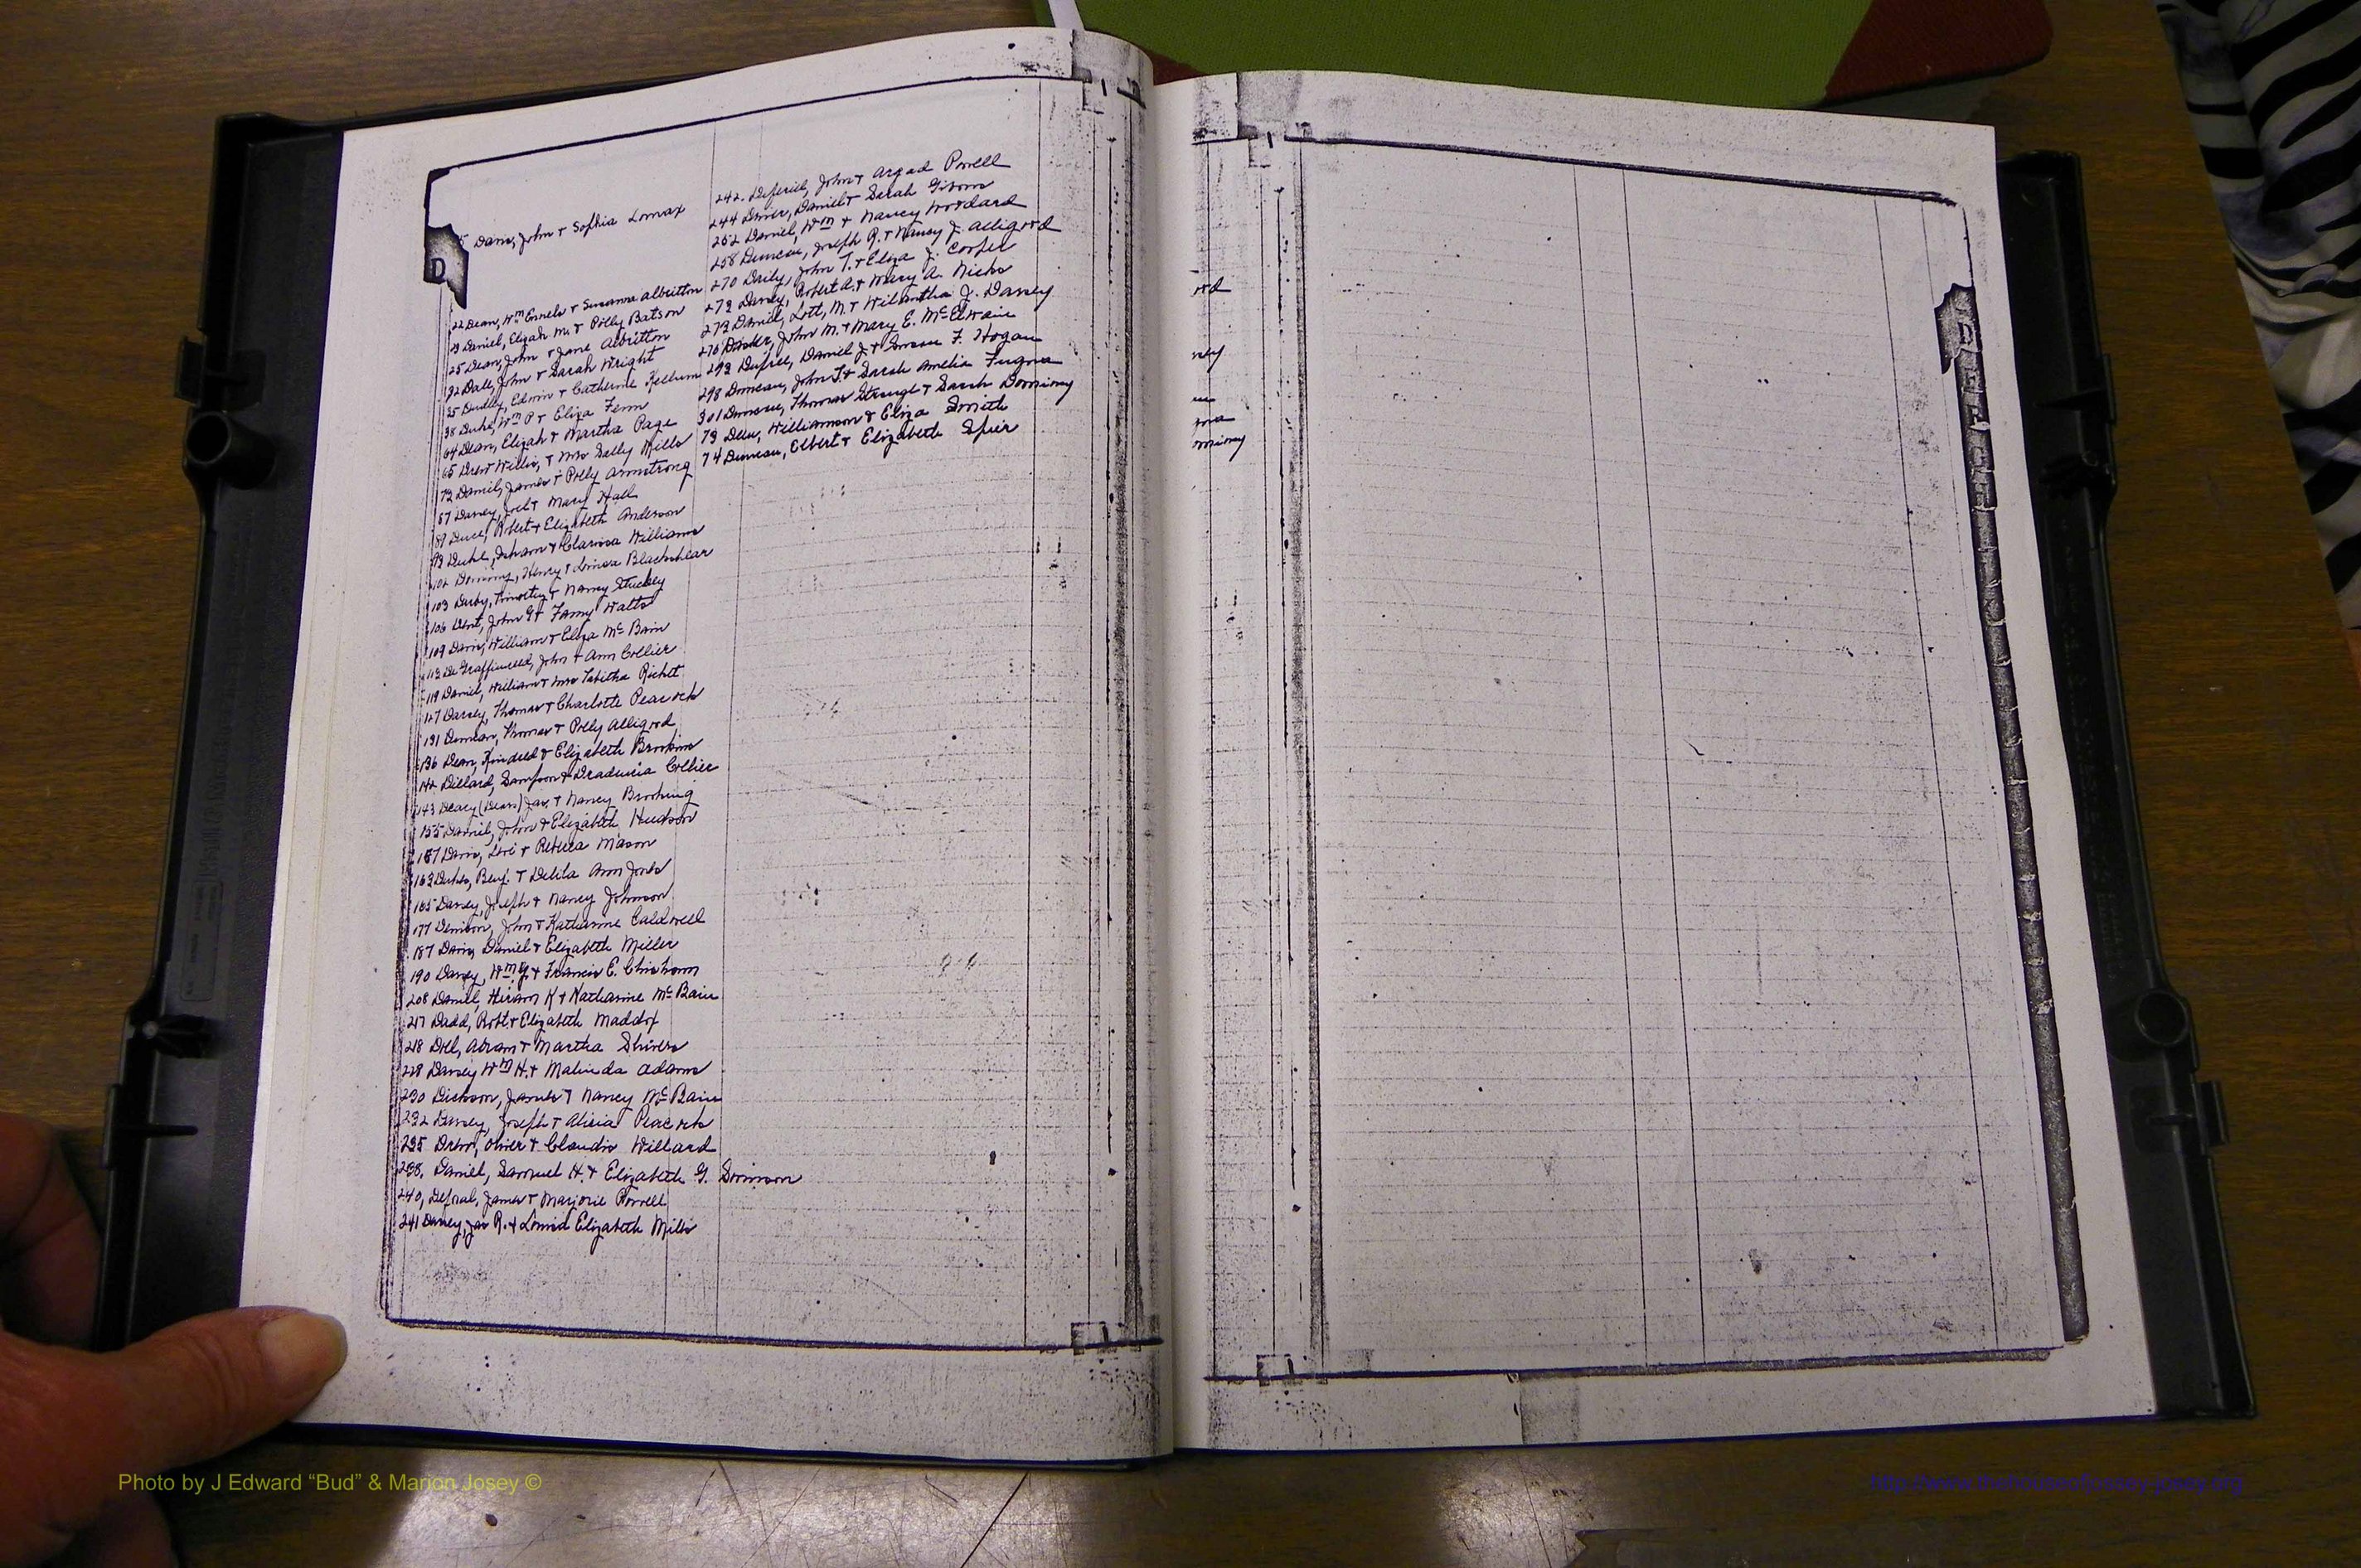 D
5 Davis, John & Sophia Lomax
22 Dean, Wm Ennels & Susanna Albritton
23 Daniel, Elizah M. & Polly Batson
25 Dean, John & Jane Albritton
32 Dale, John & Sarah Wright
35 Dudley, Edwin & Catherine Kellum
38 Duke, Wm P & Eliza Fenn
64 Dean, Elizah & Martha Page
65 Drew Willis, & Mrs Sally Mills
72 Daniel, James & Polly Armstrong
87 Darsey, Joel & Mary Hall
89 Robert & Elizabeth Anderson
93 Duke, & Clarissa Williams
102 Henry & Louisa Blackshear
103 Darby, Timothy & Nancy Stuckey
106 Dent, John G & Fanny Watts
109 Davis, William & Eliza McBain
112 De Graffinreed, John & Ann Collier
119 Daniel, William & Mrs Tabitha
127 Darsey, Thomas & Charlotte Peacock
131 Duncan, Thomas & Polly Alligood
136 Dean, Kindred & Elizabeth Brookins
142 Dillard, Sampson & Collier
143 Deacy (Dean) Jas. & Nancy Brooking
155 Daniel, John & Elizabeth Hudson
157 Davis, Levi & Rebecca Mason
163 Dukes, Benj. & Delila Ann Jones
165 Darsey, Joseph & Nancy Johnson
177 Denison, John & Katharine Caldwell
187 Davis, Daniel & Elizabeth Miller
190 Darsey, Wm G. & Francis E. Chisholm
208 Daniel, Hiram K & Katharine McBain
217 Dadd, Robt. & Elizabeth Maddox
218 Dell, Abram & Martha Shivers
228 Darsey Wm H. & Malinda Adams
230 Dickson, James & Nancy McBain
232 Darsey, Joseph & Alicia Peacock
235 Drew, Oliver & Claudia Willard
238. Daniel, Samuel H. & Elizabeth G. Swinson
240, James & Marjorie Powell
241 Darsey, Jas R. & Elizabeth Mills
242. John & Powell
244 Driver, Daniel & Sarah
252 Daniel, Wm & Nancy Woodard
258 Duncan, Joseph R. & Nancy J. Alligood
270 Daily, John T. & Eliza J. Cooper
272 Darsey, Robert A. & Mary A. Hicks
273 Daniel, Lott, M. & J. Darsey
276 John M. & Mary E. McElwain
292 Dupree, Daniel J. & Susan F. Hogan
298 Duncan, John T. & Sarah Amelia Fuqua
301 Thomas Strange & Sarah Dominy
73 Williamson & Eliza Smith
74 Duncan, Elbert & Elizabeth Spier
D
Photo by J Edward “Bud” & Marion Josey ©
http://www.thehouseofjossey-josey.org